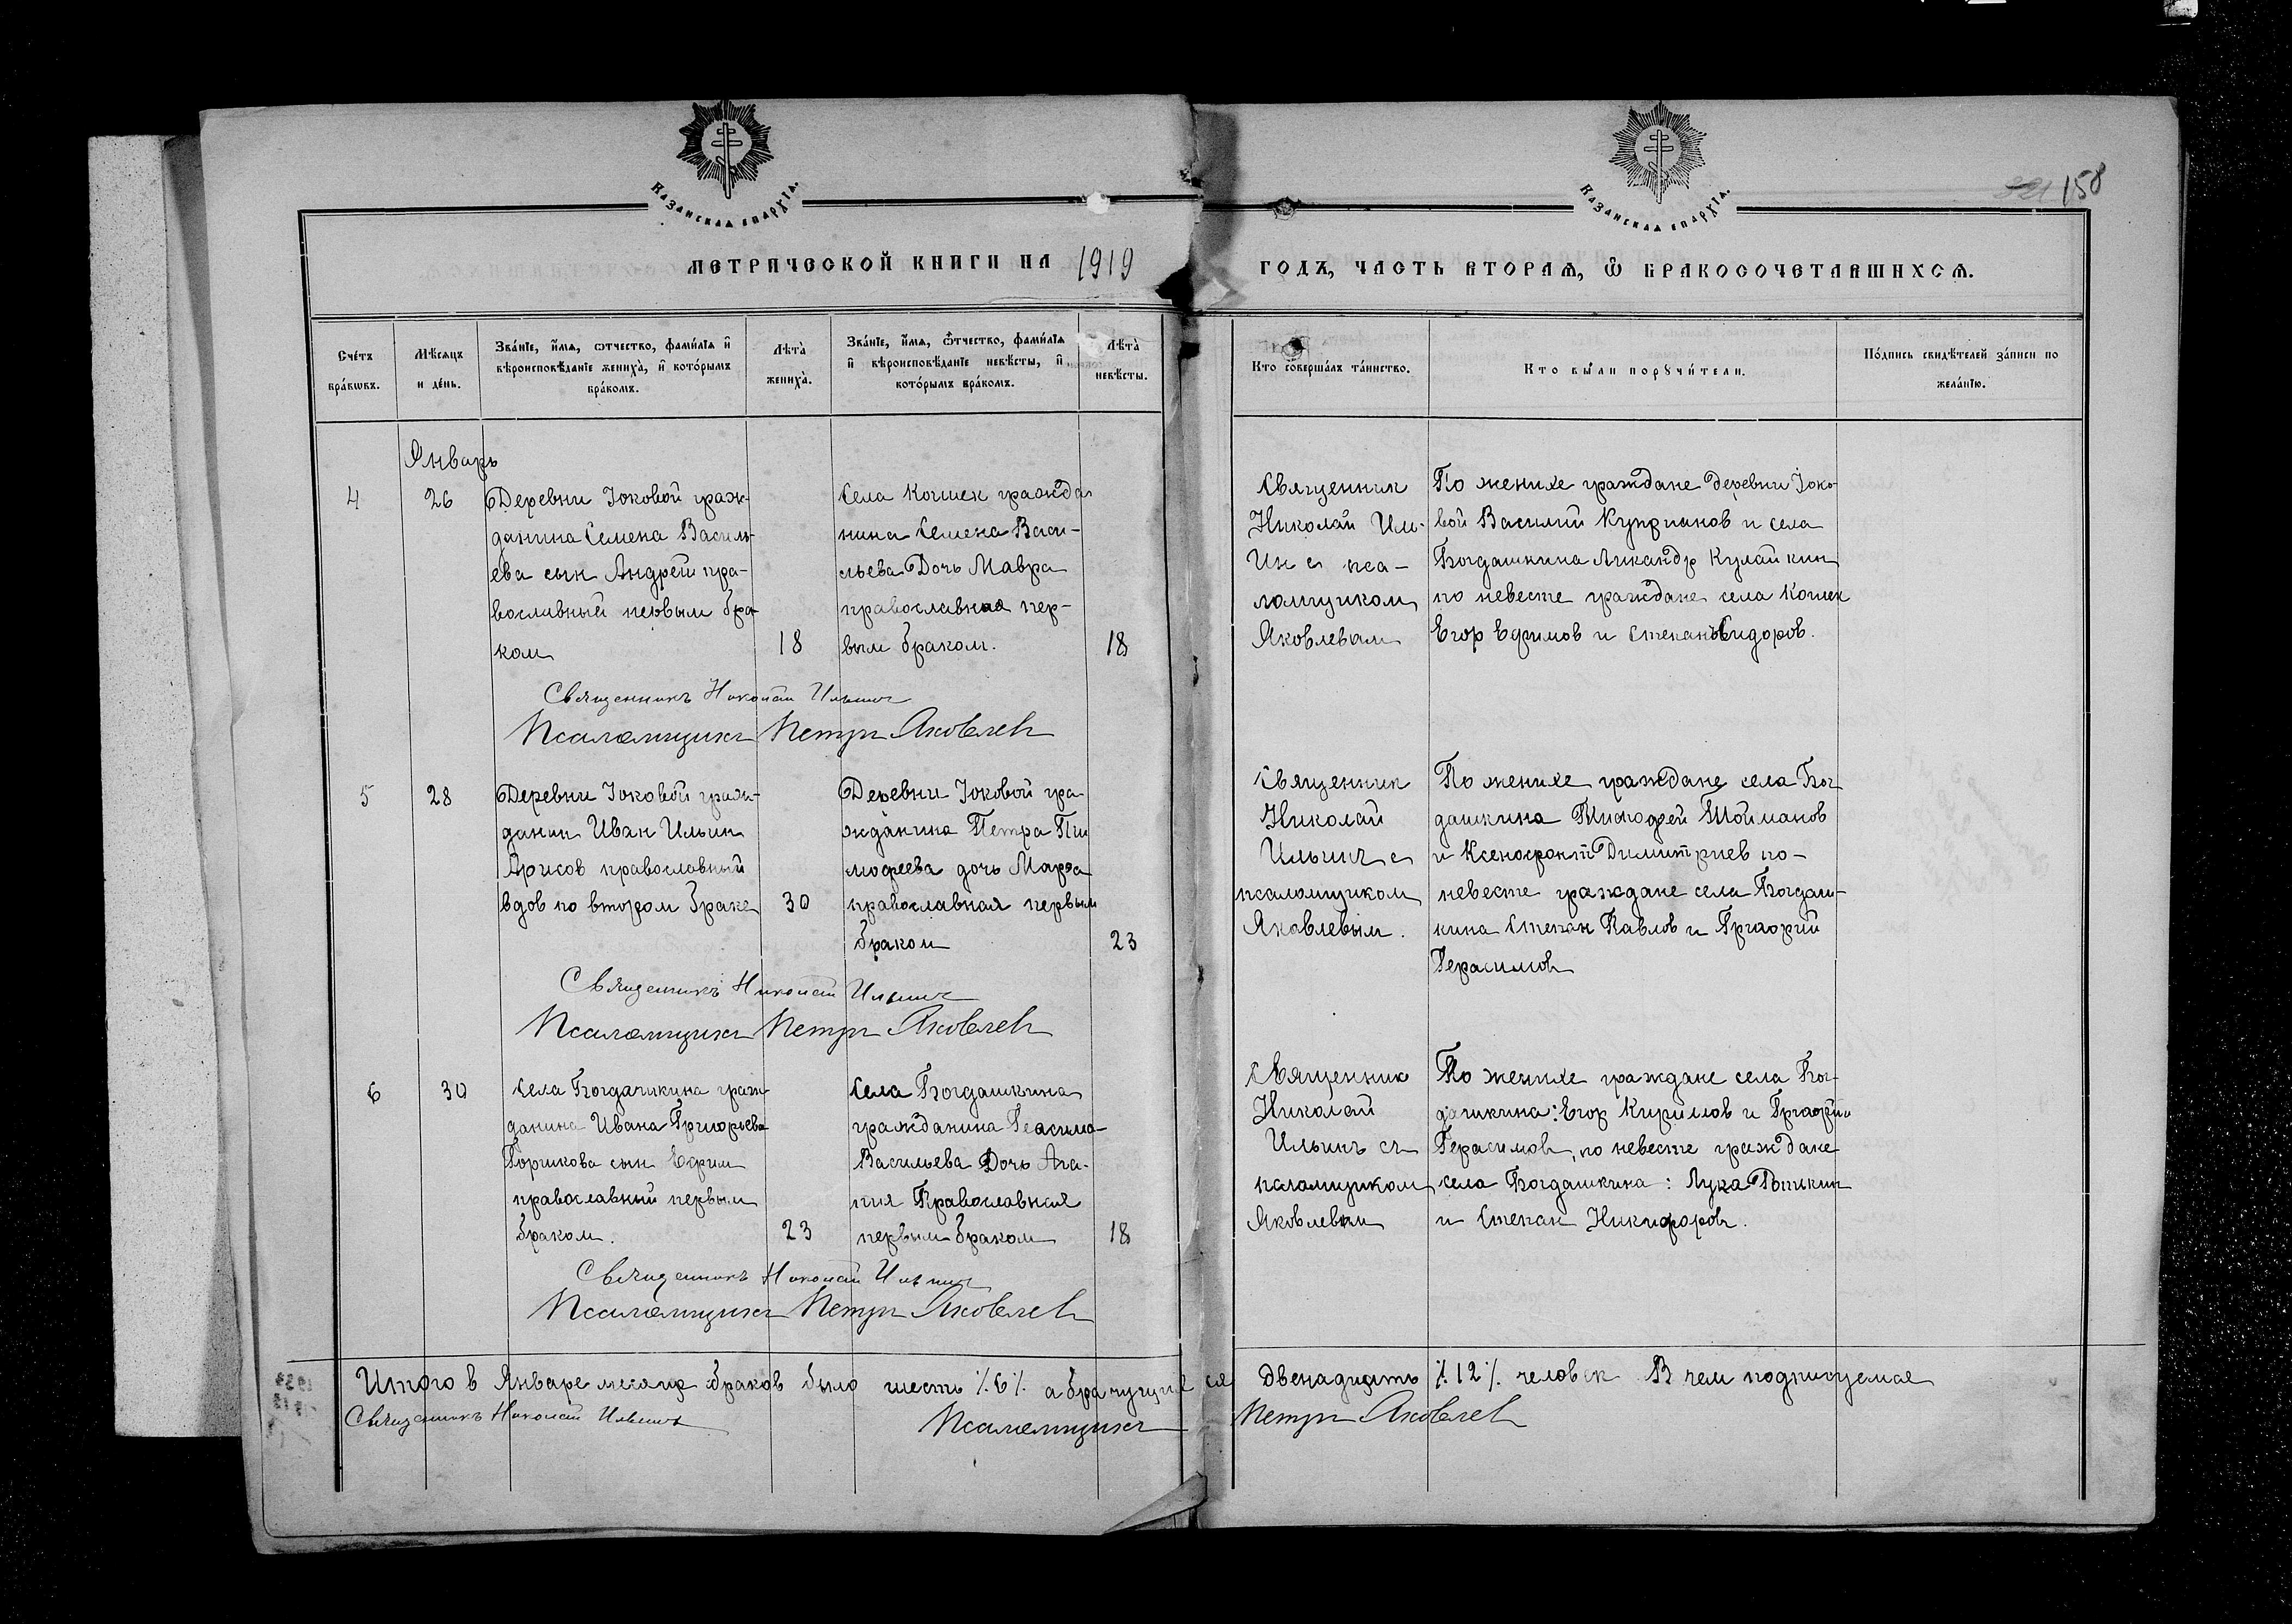 КАЗАНСКАЯ ЕПАРХІЯ.
КАЗАНСКАЯ ЕПАРХІЯ.
158
МЕТРИЧЕСКОЙ КНИГИ НА 1919 ГОДЪ, ЧАСТЬ ВТОРАЯ, Ѿ БРАКОСОЧЕТАВШИХСЯ.
Сче́тъ бра́кѡвъ.
Мѣ́сяцъ и де́нь.
Зва́нїе, и҆́мя, ѻ҆́тчество, фами́лїя и҆ вѣроисповѣ́данїе жениха̀, и҆ кото́рымъ бра́комъ.
Лѣ́та̀ жениха̀.
Зва́нїе, и҆́мя, ѻ҆́тчество, фами́лїя и҆ вѣроисповѣ́данїе невѣ́сты, и҆ кото́рымъ бра́комъ.
Лѣ́та̀ невѣ́сты.
Кто̀ соверша́лъ та́инство.
Кто̀ бы́ли порꙋчи́тели.
По́дпись свидѣ́телей за́писи по жела́нїю.
Январь
4
26
Деревни Іоковой граж-
данина Семена Василь-
ева сын Андрей пра-
вославный первым бра-
ком
18
Села Кошек гражда
нина Семена Васи-
льева Дочь Мавра
православная пер-
вым браком.
18
Священник
Николай Иль-
ин с пса-
ломщиком
Яковлевым
По женихе граждане деревни Іоко-
вой Василий Куприанов и села
Богдашкина Никандр Кулайкин
по невесте граждане села Кошек
Егор Ефимов и Степанъ Сидоров.
Священникъ Николай Ильинъ
Псаломщикъ Петръ Яковлевъ
5
28
Деревни Іоковой граж-
данин Иван Ильин
Арисов православный
вдов по втором браке
30
Деревни Іоковой гра
жданина Петра Ти
мофеева дочь Марфа
православная первым
браком
23
Священник
Николай
Ильинъ с
псаломщиком
Яковлевым.
По женихе граждане села Бог
дашкина Тимофей Тойманов
и Ксенофонт Димитриев по-
невесте граждане села Богдаш-
кина Степан Павлов и Григорий
Герасимов
Священникъ Николай Ильинъ
Псаломщикъ Петръ Яковлевъ
6
30
Села Богдашкина граж-
данина Ивана Григорьева
Горшкова сын Ефрим
православный первым
браком.
23
Села Богдашкина
гражданина Геасима-
Васильева Дочь Ага-
пия Православная
первым браком
18
Священник
Николай
Ильинъ съ
псаломщиком
Яковлевым
По женихе граждане села Бог-
дашкина: Егор Кирилов и Григорий
Герасимов, по невесте граждане
села Богдашкина: Лука
и Степан Никифоров.
Священникъ Николай Ильинъ
Псаломщикъ Петръ Яковлевъ
Итого в Январе месяце браков было шесть ٪6٪ а брачущихся двенадцать ٪12٪ человек В чем подписуемся
Священникъ Николай Ильинъ Псаломщикъ Петръ Яковлевъ